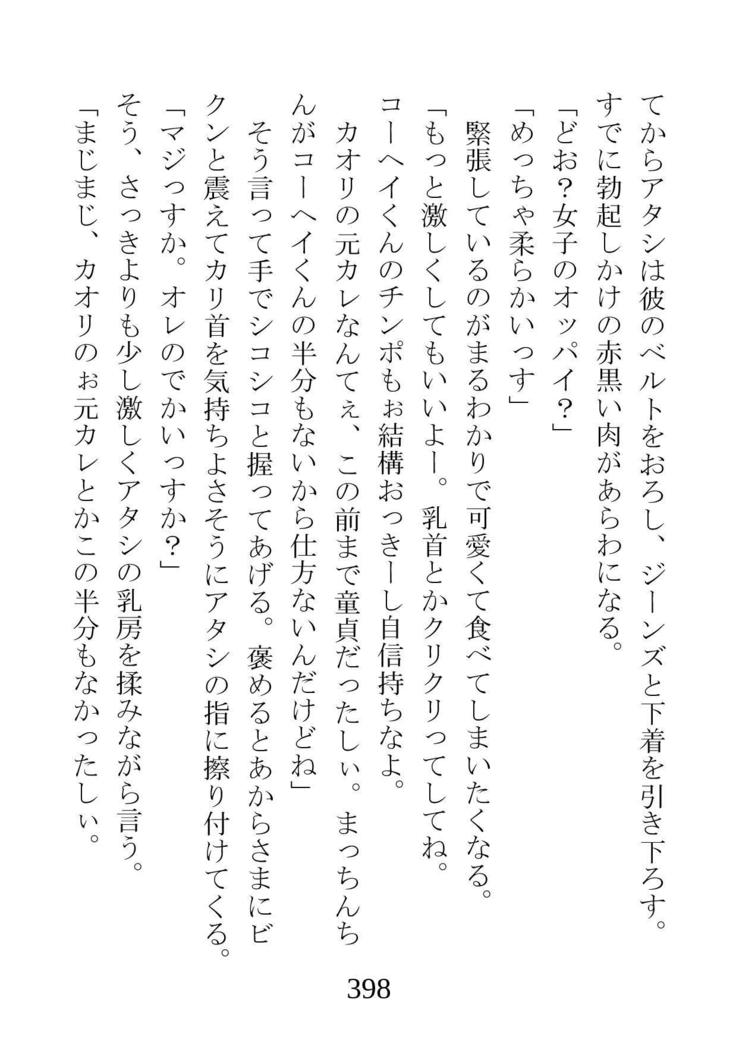 てからアタシは彼のベルトをおろし、ジーンズと下着を引き下ろす。
すでに勃起しかけの赤黒い肉があらわになる。
「どお？女子のオッパイ？」
「めっちゃ柔らかいっす」
　緊張しているのがまるわかりで可愛くて食べてしまいたくなる。
「もっと激しくしてもいいよー。乳首とかクリクリってしてね。
コーヘイくんのチンポもぉ結構おっきーし自信持ちなよ。
　カオリの元カレなんてぇ、この前まで童貞だったしぃ。まっちんち
んがコーヘイくんの半分もないから仕方ないんだけどね」
　そう言って手でシコシコと握ってあげる。褒めるとあからさまにビ
クンと震えてカリ首を気持ちよさそうにアタシの指に擦り付けてくる。
「マジっすか。オレのでかいっすか？」
そう、さっきよりも少し激しくアタシの乳房を揉みながら言う。
「まじまじ、カオリのぉ元カレとかこの半分もなかったしぃ。
398